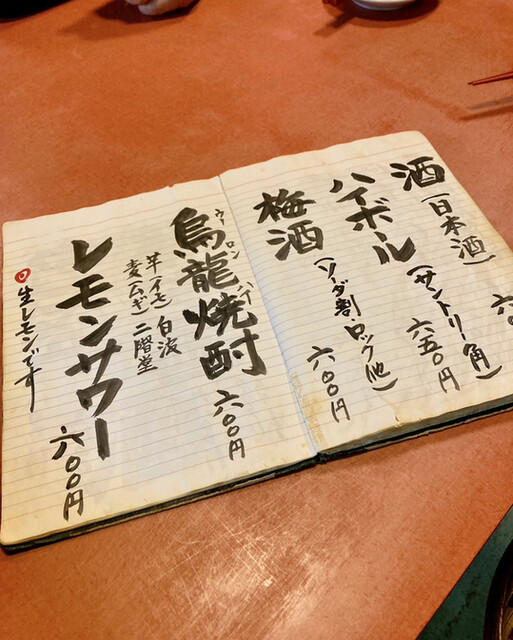 酒(日本酒)
六
ハイボール(サントリー角)
六五〇円
梅酒(ソーダ割 ロック他)
六〇〇円
烏龍焼酎
ウーロンハイ
六〇〇円
芋(イモ)白波
麦(ムギ)二階堂
レモンサワー
六〇〇円
生レモンです